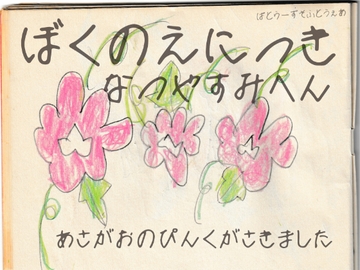 ばとうーずそふとうぇあ
ぼくのえにつき
なつやすみへん
あさがおのぴんくがさきました